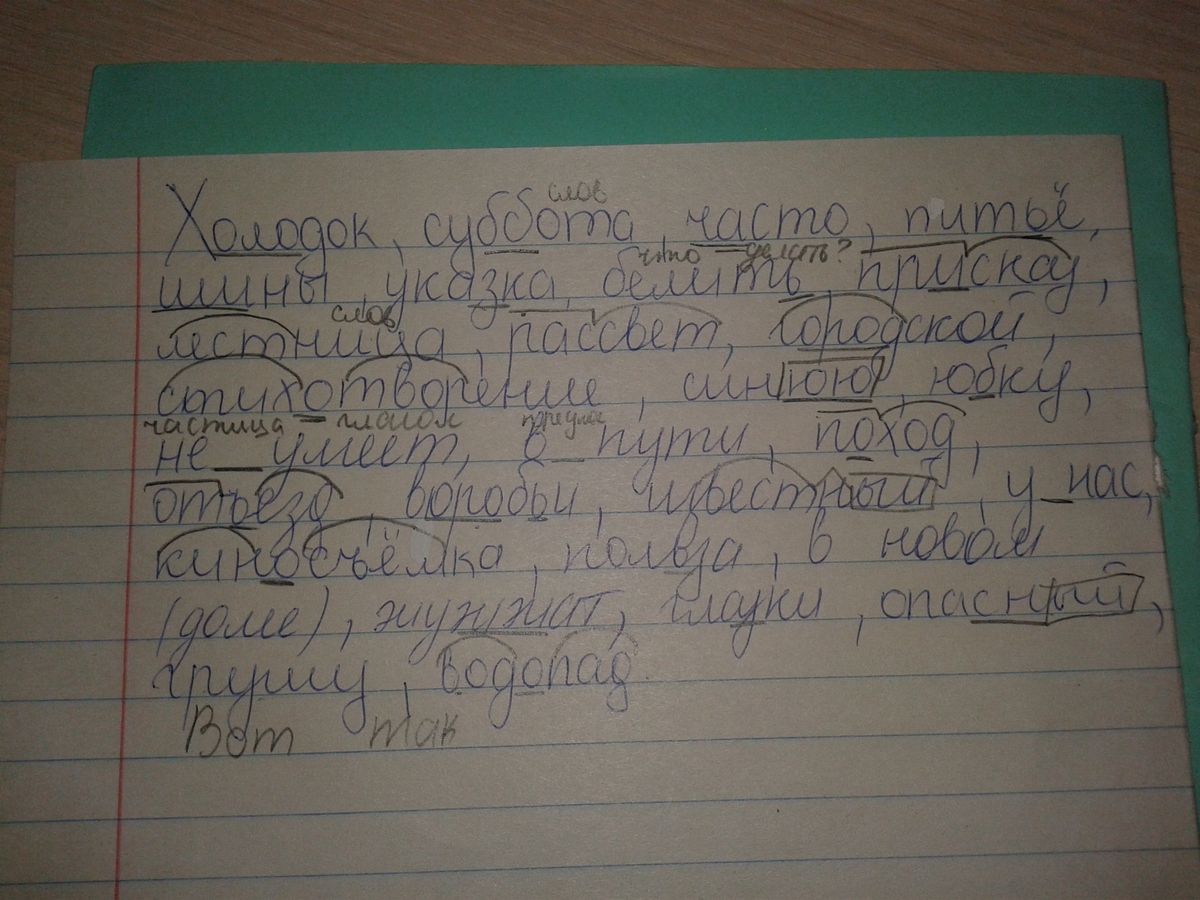 слов
Холодок, суббота, часто, питьё,
что делать?
шины, указка, белить, прискау,
слов
лестница, рассвет, городской,
стихотворение, синюю, юбку,
частица глагол
не умеет, в пути, поход,
отъезд, воробьи, известный, у нас,
киносъёмка, польза, в новом
(доме), жужжат, глазки, опасный,
грушу, водопад.
Вот так